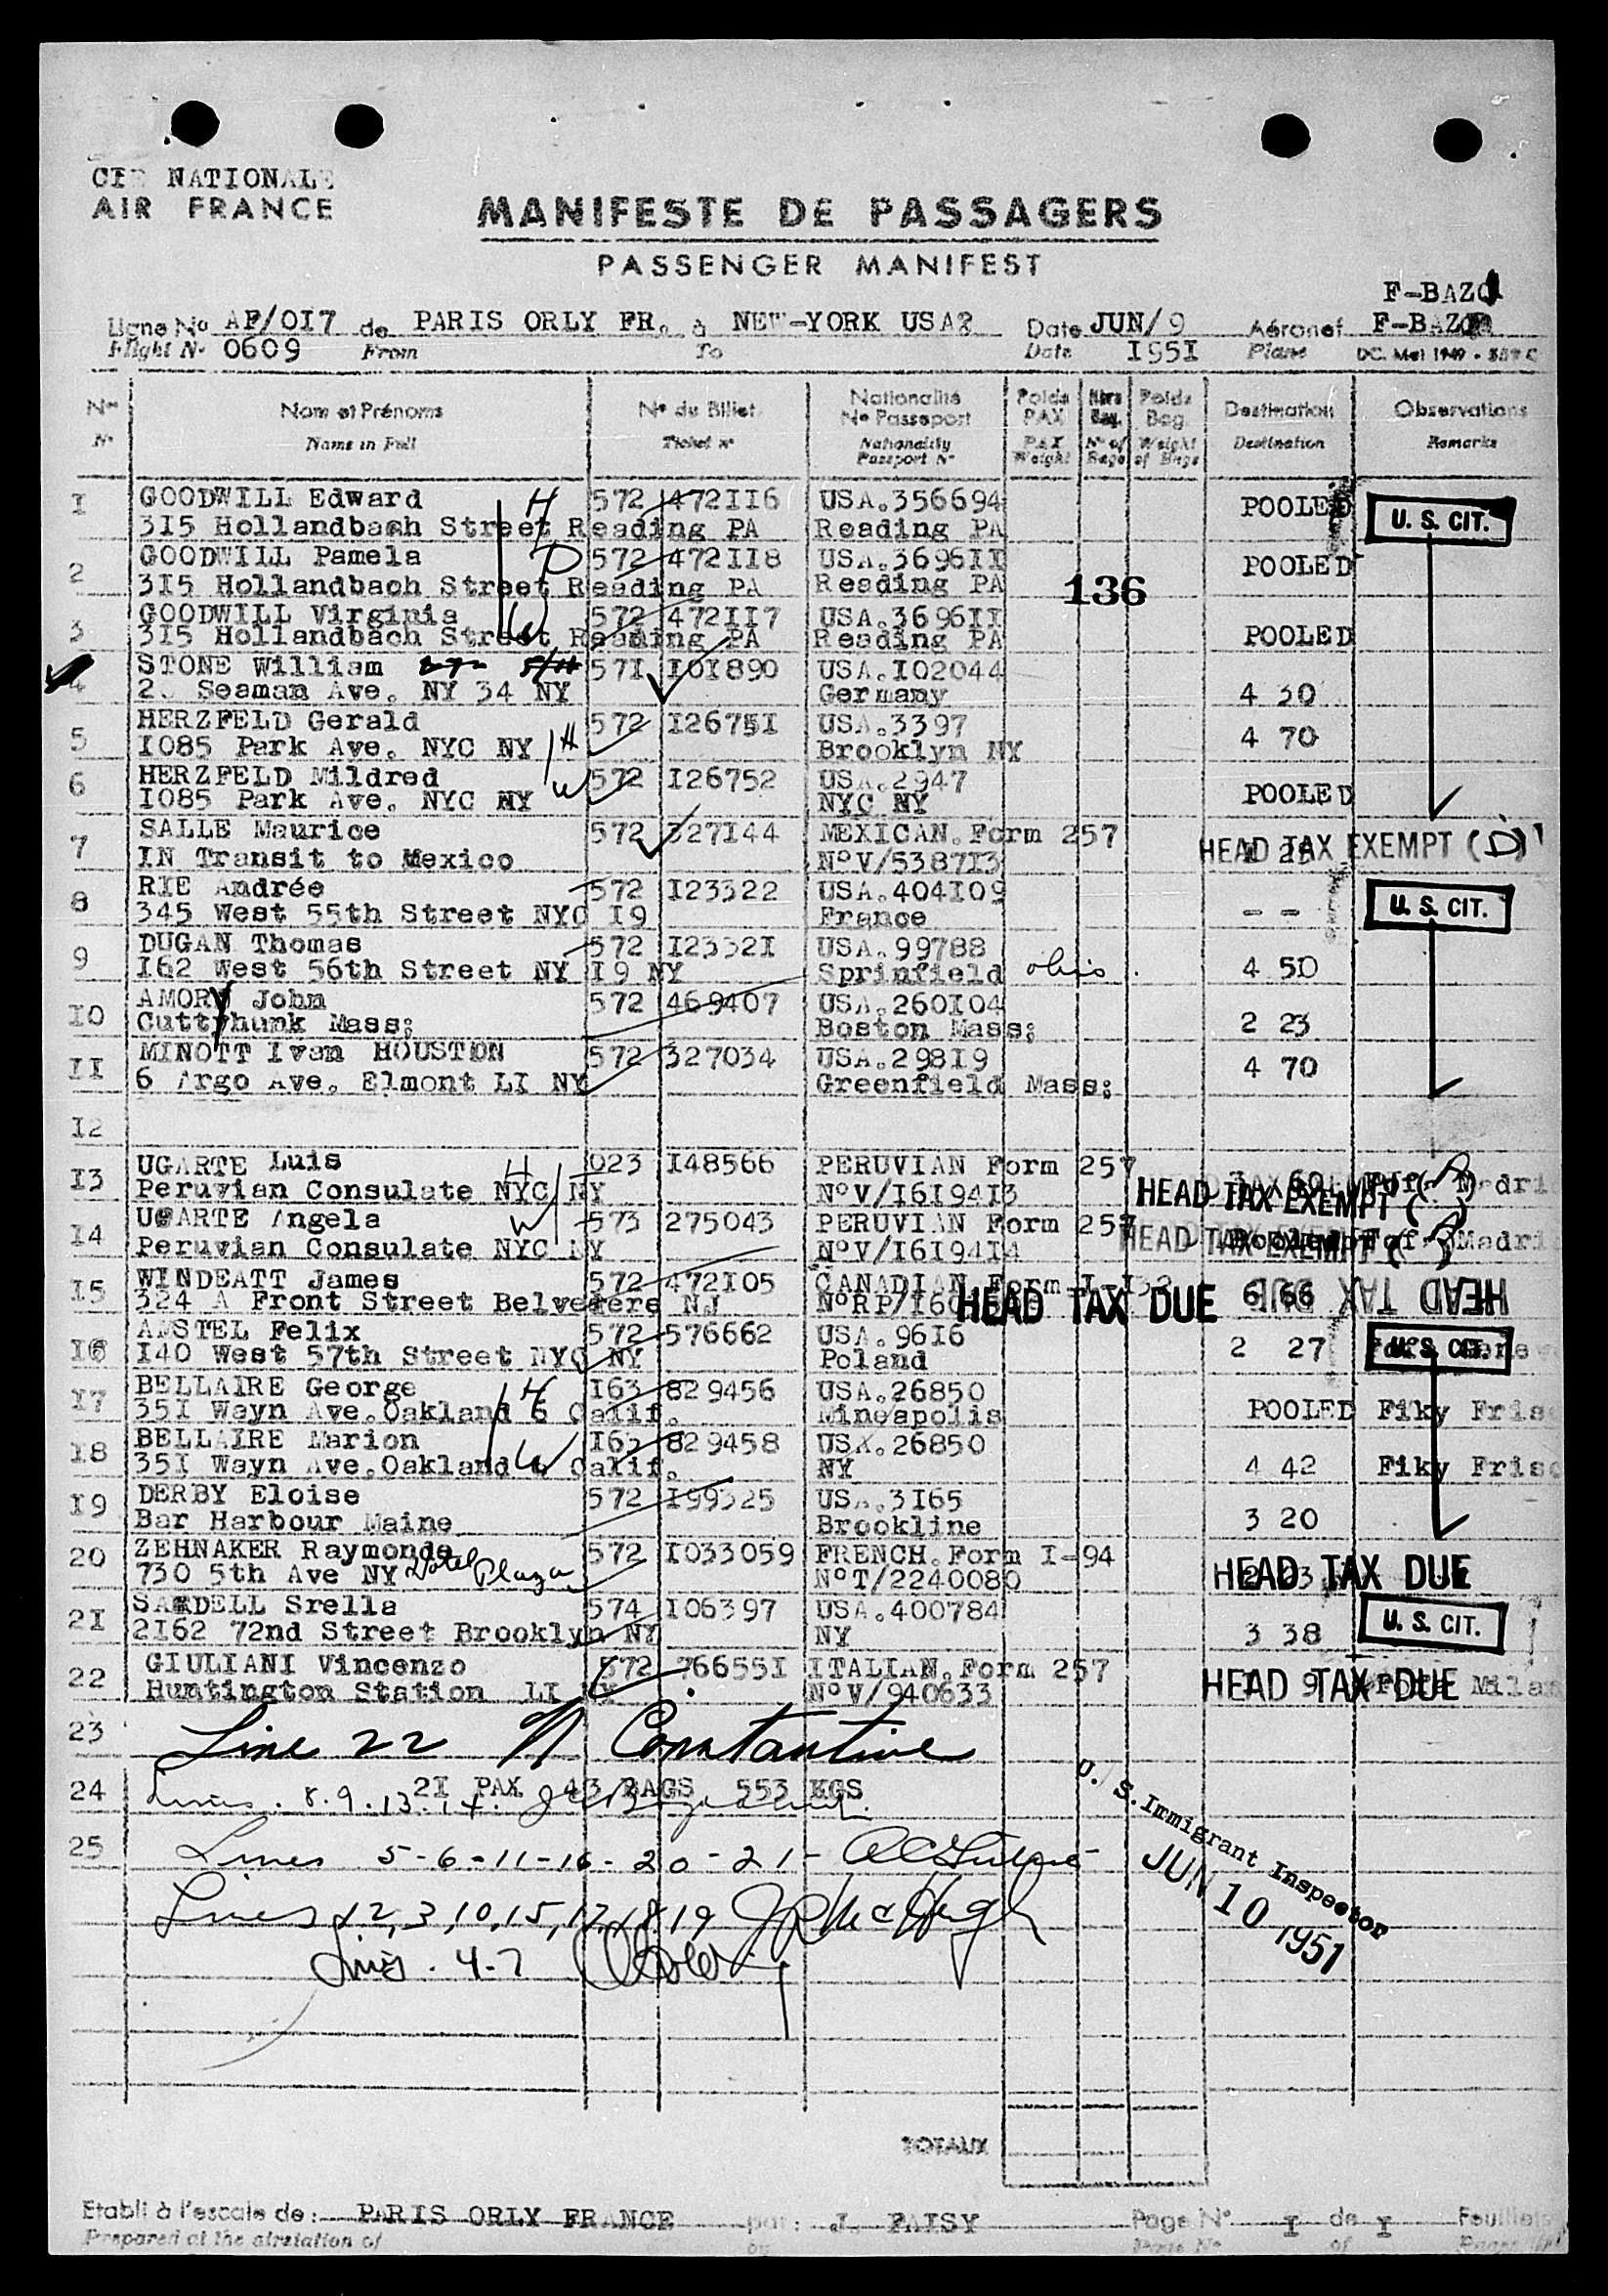 CIE NATIONALE
AIR FRANCE
MANIFESTE DE PASSAGERS
PASSENGER MANIFEST
F-BAZ
Ligne No AF/OI7 de PARIS ORLY FR. à NEW-YORK USA? Date JUN/9 Aéronef F-BAZ
Flight No 0609 From To Date I95I Plane DC. Mai 1949
Nos Nom et Prénoms No du Billet Nationalité No Passeport Poids PAX Nbre Bag. Poids Bag. Destination Observations
No Name in Full Ticket no Nationality Passport No PAX Weight No of Bags Weight of Bags Destination Remarks
I GOODWILL Edward H 572 472II6 USA.356694 POOLED U. S. CIT.
3I5 Hollandbach Street Reading PA Reading PA
2 GOODWILL Pamela D 572 472II8 USA.3696II POOLED
3I5 Hollandbach Street Reading PA Reading PA 136
3 GOODWILL Virginia W 572 472II7 USA.3696II POOLED
3I5 Hollandbach Street Reading PA Reading PA
4 STONE William 57I I0I890 USA.I02044 4 30
Seaman Ave. NY 34 NY Germany
5 HERZFELD Gerald H 572 I2675I USA.3397 4 70
I085 Park Ave. NYC NY Brooklyn NY
6 HERZFELD Mildred W 572 I26752 USA.2947 POOLED
I085 Park Ave. NYC NY NYC NY
7 SALLE Maurice 572 327I44 MEXICAN.Form 257 HEAD TAX EXEMPT (D)
IN Transit to Mexico NoV/5387I3
8 RIE Andrée 572 I23322 USA.404I09 - - U. S. CIT.
345 West 55th Street NYC I9 France
9 DUGAN Thomas 572 I2332I USA.99788 4 50
I62 West 56th Street NY I9 NY Sprinfield ohio.
I0 AMORY John 572 469407 USA.260I04 2 23
Cuttyhunk Mass; Boston Mass;
II MINOTT Ivan HOUSTON 572 327034 USA.298I9 4 70
6 Argo Ave. Elmont LI NY Greenfield Mass;
I2
I3 UGARTE Luis H 023 I48566 PERUVIAN Form 257 HEAD TAX EXEMPT Madri
Peruvian Consulate NYC NY NoV/I6I94I3
I4 UGARTE Angela W 573 275043 PERUVIAN Form 257 HEAD TAX EXEMPT Madri
Peruvian Consulate NYC NY NoV/I6I94I4
I5 WINDEATT James 572 472I05 CANADIAN Form HEAD TAX DUE 6 66 HEAD TAX DUE
324 A Front Street Belvedere NJ NoRP/I60
I6 AMSTEL Felix 572 576662 USA.96I6 2 27 U. S. CIT.
I40 West 57th Street NYC NY Poland
I7 BELLAIRE George H I63 829456 USA.26850 POOLED Fiky Frisc
35I Wayn Ave.Oakland 6 Calif. Mineapolis
I8 BELLAIRE Marion W I63 829458 USA.26850 4 42 Fiky Frisc
35I Wayn Ave.Oakland 6 Calif. NY
I9 DERBY Eloise 572 I99325 USA.3I65 3 20
Bar Harbour Maine Brookline
20 ZEHNAKER Raymonde 572 I033059 FRENCH.Form I-94 HEAD TAX DUE
730 5th Ave NY Hotel Plaza NoT/2240080
2I SARDELL Srella 574 I06397 USA.400784 3 38 U. S. CIT.
2I62 72nd Street Brooklyn NY NY
22 GIULIANI Vincenzo 572 76655I ITALIAN.Form 257 HEAD TAX DUE Milan
Huntington Station LI NY NoV/940633
23 Line 22 Constantine
24 2I PAX 43 BAGS 553 KGS
Lines. 8.9.13.14.
25 Lines 5-6-11-16-20-21-
Lines 1,2,3,10,15,17,18,19 J P McHugh
Lines. 4-7
U. S. Immigrant Inspector
JUN 10 1951
TOTAUX
Etabli à l'escale de: PARIS ORLY FRANCE par: J. PAISY Page No I de I Feuillets
Prepared at the airstation of by Page No of Pages